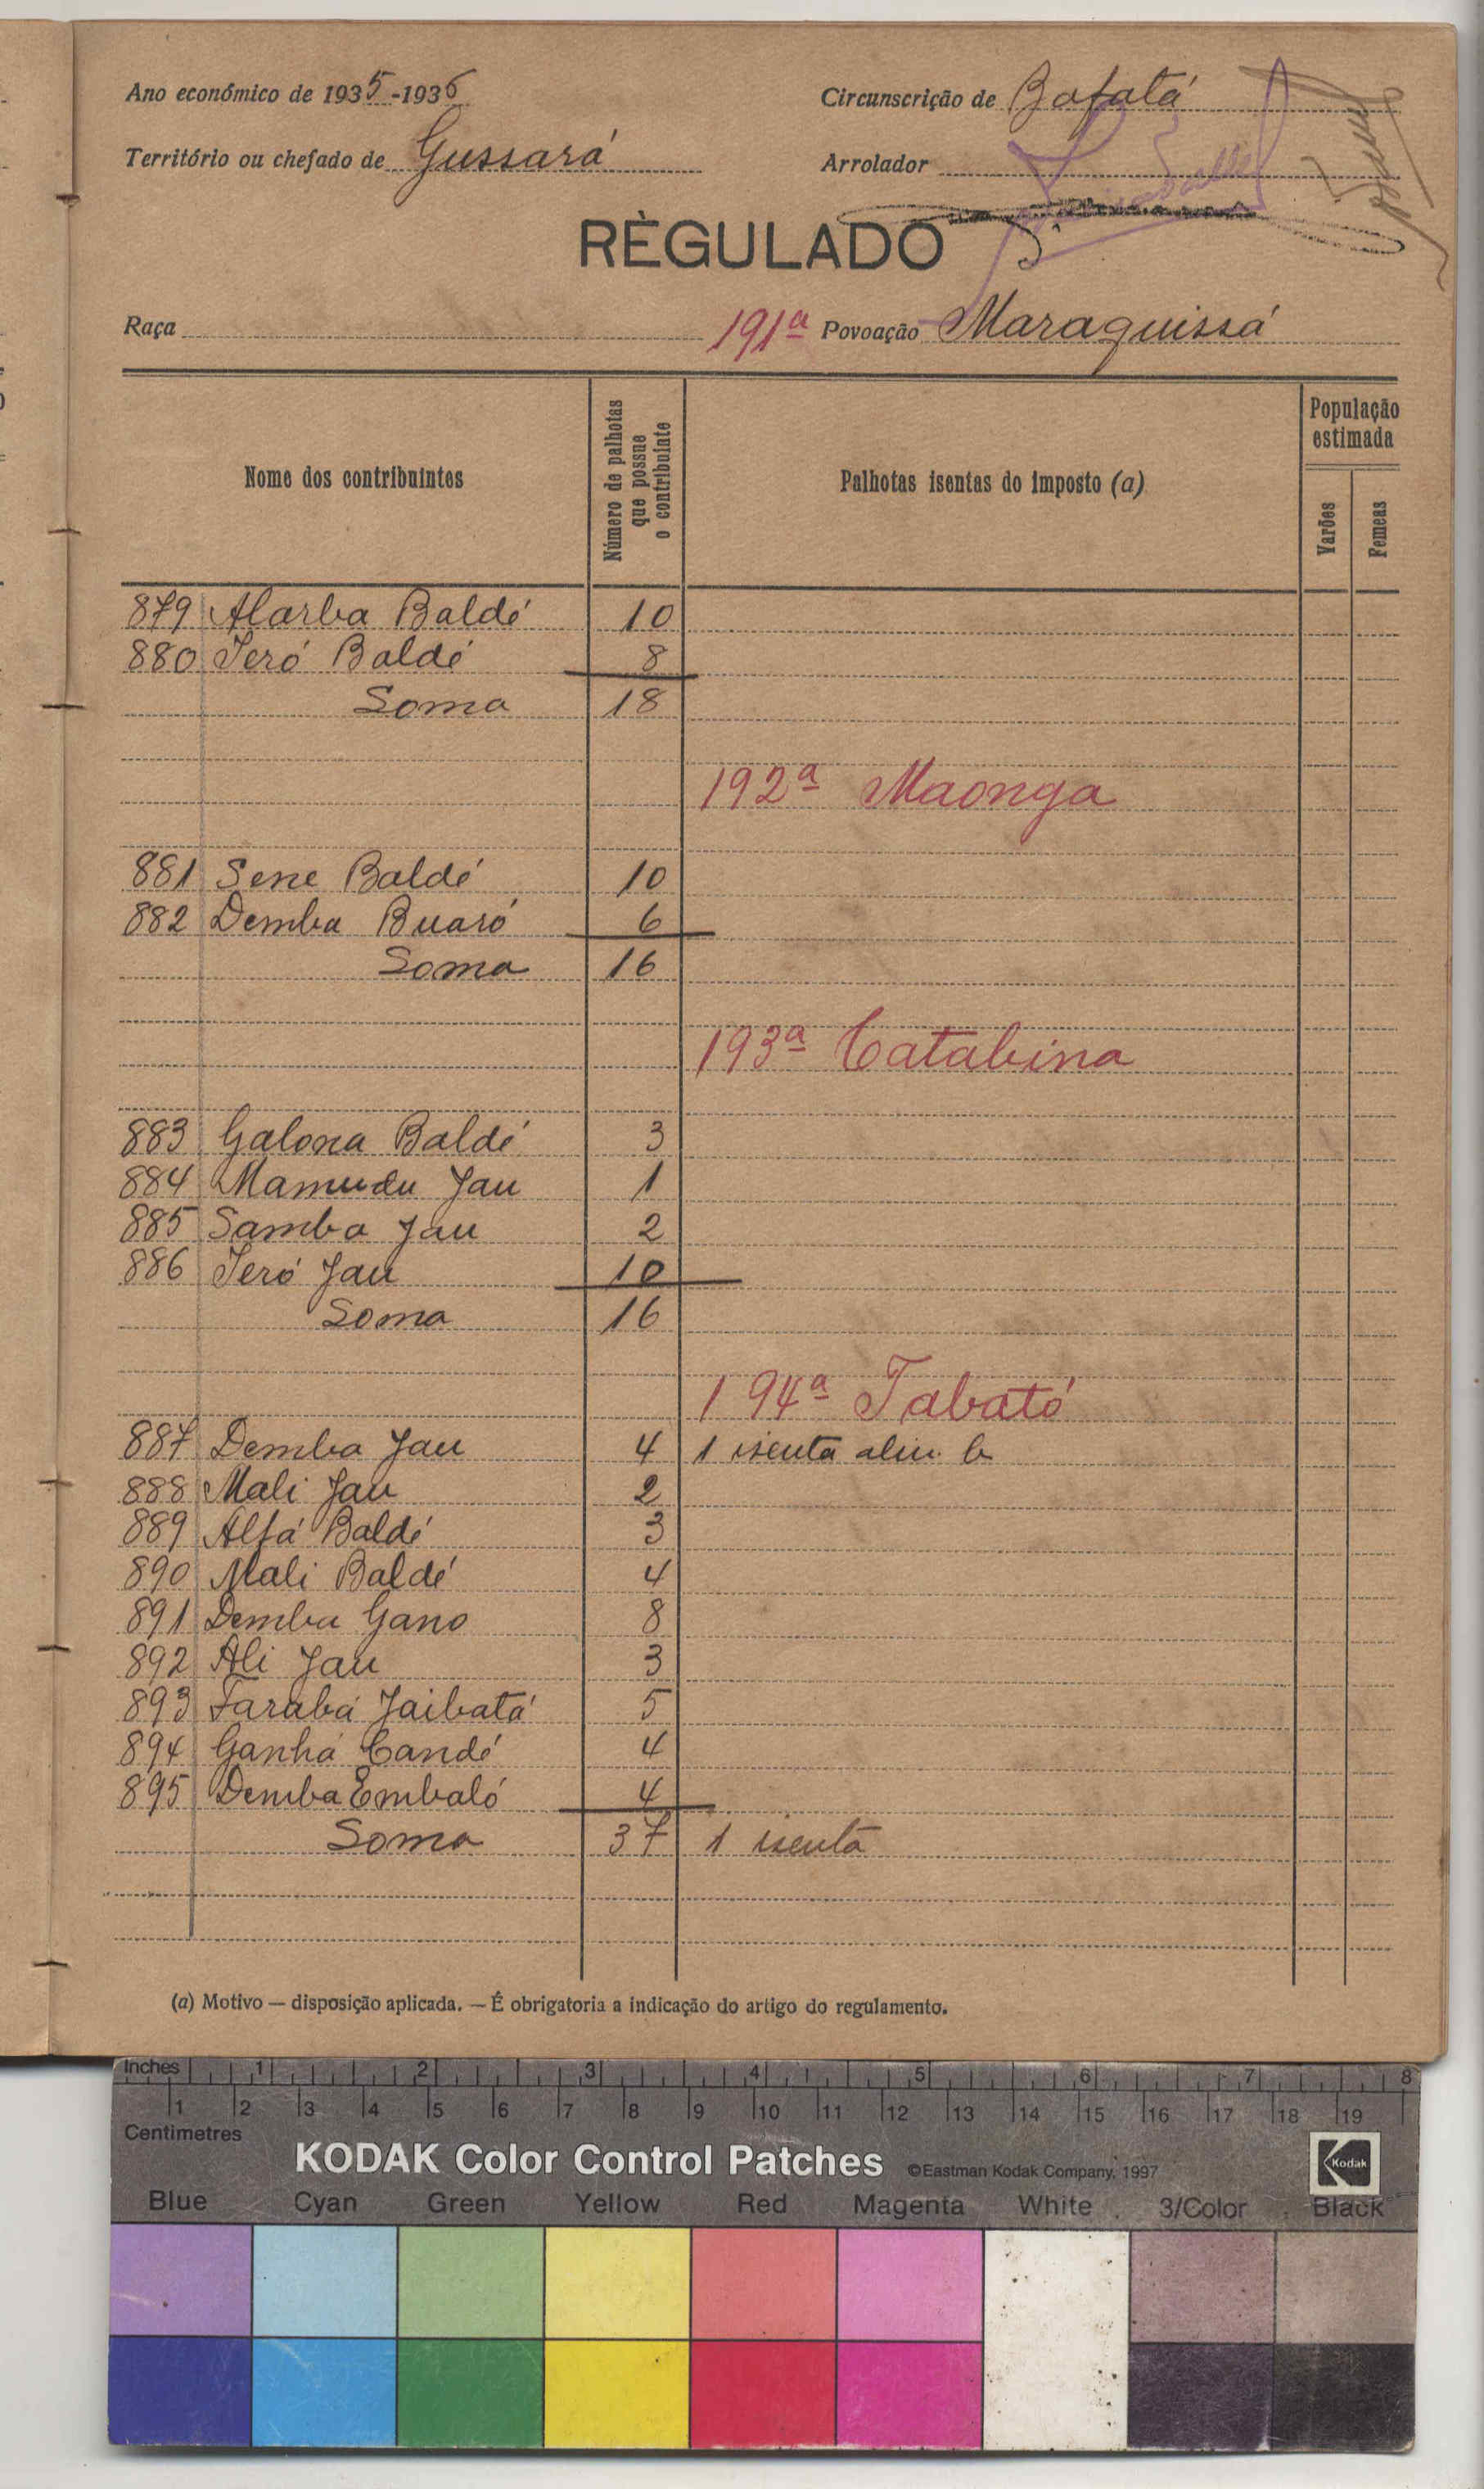 Ano económico de 1935-1936
Circunscrição de Bafatá
Território ou chefado de Gussará
Arrolador
RÈGULADO
Raça
191ª Povoação Maraquissá
Nome dos contribuintes
Número de palhotas que possue o contribuinte
Palhotas isentas do imposto (a)
População estimada
Varões
Femeas
879 Alarba Baldé 10
880 Teró Baldé 8
Soma 18
192ª Maonga
881 Sene Baldé 10
882 Demba Buaró 6
Soma 16
193ª Catabina
883 Galona Baldé 3
884 Mamudu Jau 1
885 Samba Jau 2
886 Teró Jau 10
Soma 16
194ª Tabató
887 Demba Jau 4 1 isenta alin. b
888 Mali Jau 2
889 Alfá Baldé 3
890 Mali Baldé 4
891 Demba Gano 8
892 Ali Jau 3
893 Farabá Jaibatá 5
894 Ganhá Candé 4
895 Demba Embaló 4
Soma 37 1 isenta
(a) Motivo — disposição aplicada. — É obrigatoria a indicação do artigo do regulamento.
Inches 1 2 3 4 5 6 7 8
1 2 3 4 5 6 7 8 9 10 11 12 13 14 15 16 17 18 19
Centimetres
KODAK Color Control Patches ©Eastman Kodak Company, 1997 Kodak
Blue Cyan Green Yellow Red Magenta White 3/Color Black